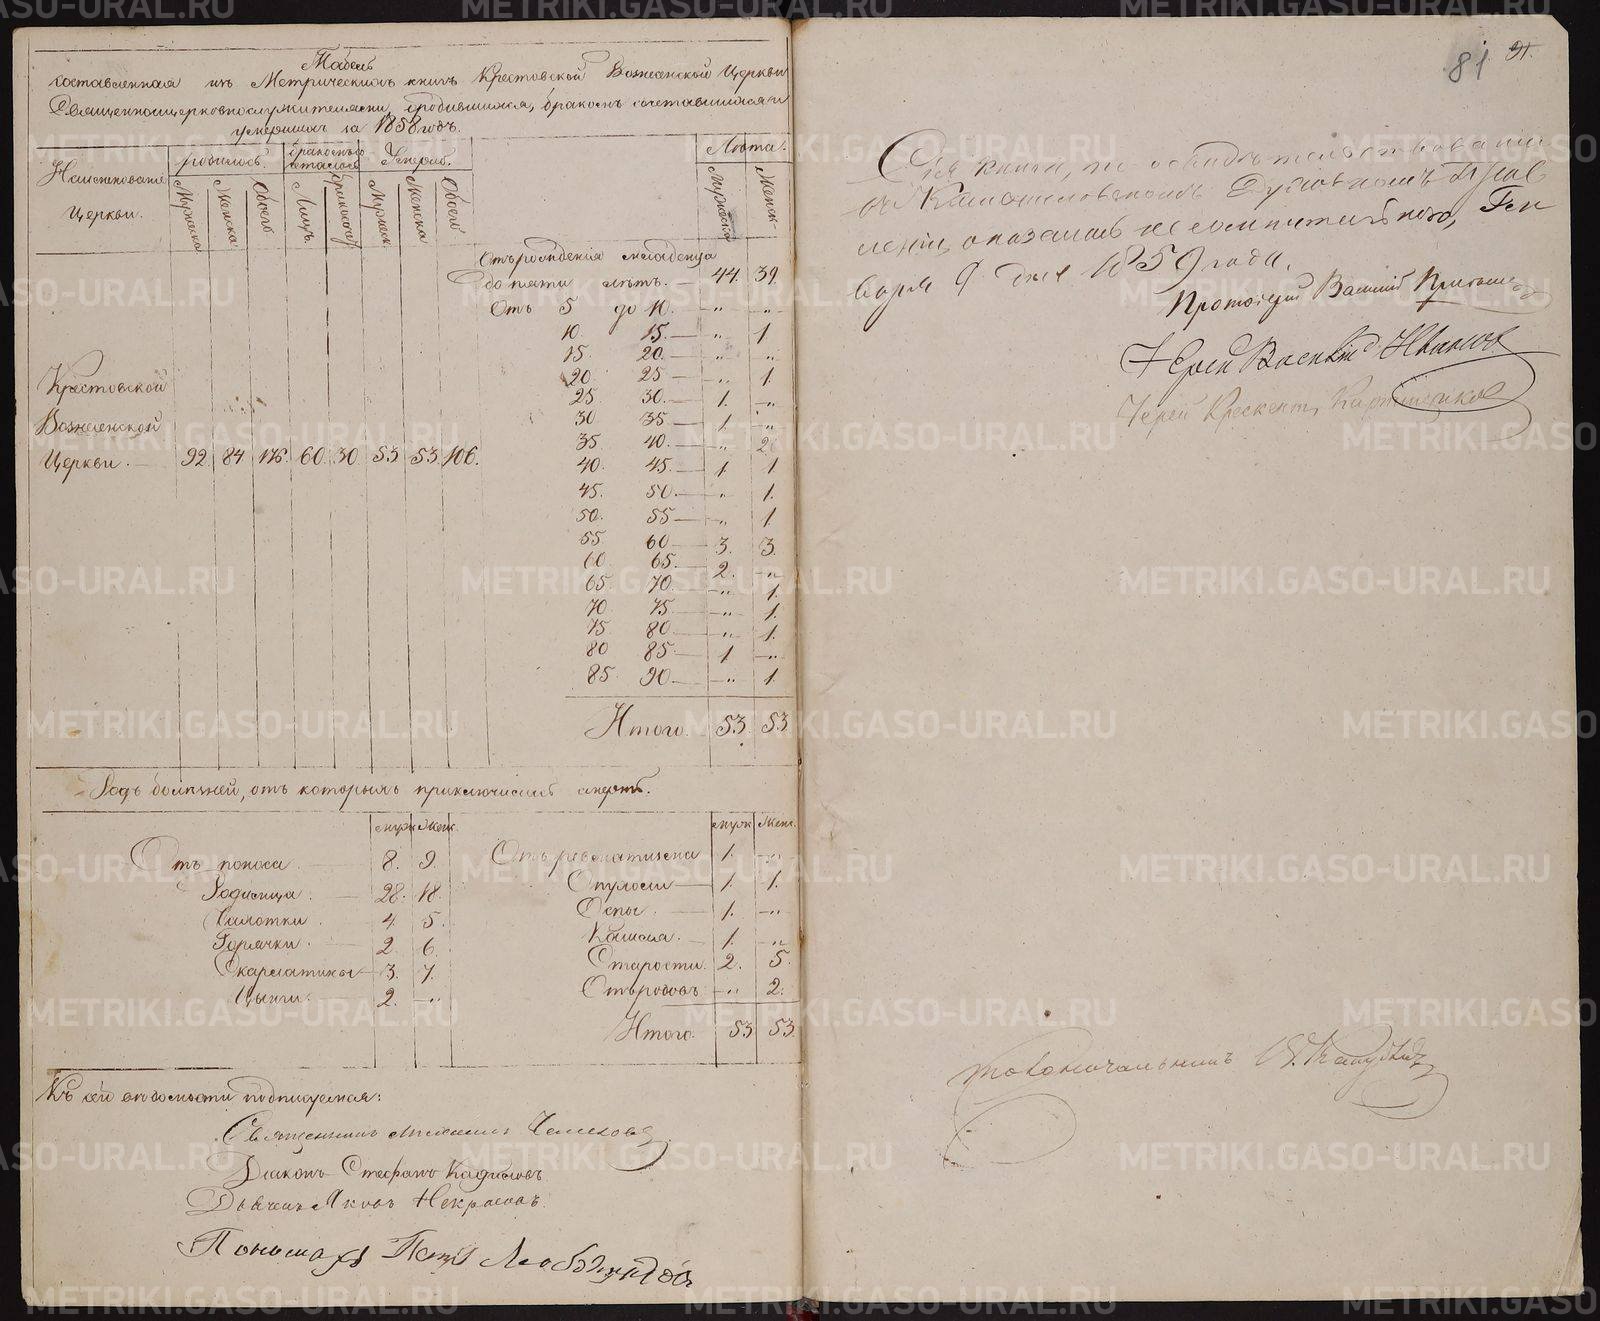 Табель
составленная изъ Метрическихъ книгъ Крестовской Вознесенской Церкви
Священноцерковнослужителями, о родившихся, бракомъ сочетавшихся и
умершихъ за 1858 годъ.
Наименование Церкви.
родилось.
бракомъ сочеталось
Умерло.
Лѣта.
Мужеска
Женска
Обоего
Лицъ
Мужеск
Женска
Обоего
Мужеска
Женск
Отъ рожденія младенца
до пяти лѣтъ. — 44. 39.
Отъ 5 до 10. — „ „
10 15. — „ 1
15. 20. — „ „
20. 25 — „ 1.
25 30. — 1. „
30 35 — 1 „
35 40. — „ 2
40. 45. — 1. 1
45. 50. — „ 1.
50. 55 — „ 1.
55 60 — 3. 3.
60 65. — 2. „
65. 70. — „ 1.
70 75. — „ 1.
75 80 — „ 1.
80 85 — 1 „
85. 90. — „ 1.
Итого. 53. 53
Крестовской
Вознесенской
Церкви. — 92. 84 176. 60. 30 53 53. 106.
Родъ болѣзней, отъ которыхъ приключилась смерть.
муж женск.
муж женс.
Отъ поноса — 8. 9.
Родимца — 28. 18.
4 5.
Горячки — 2 6.
Скарлатины — 3. 7.
Цынги. 2. „
Отъ ревматизма 1. „
Опухоли — 1. 1.
Оспы. — 1. „
Кашля. — 1. „
Старости. 2. 5.
Отъ родовъ „ 2.
Итого. 53 53.
Къ сей вѣдомости подписуемся:
Священникъ
Діаконъ Стефанъ
Дьячекъ Яковъ Некрасовъ
Пономарь Петръ
81 91.
Сія книга, по освидѣтельствованіи
въ Камышловскомъ Духовномъ Прав
леніи, оказалась не сомнительною, Ген
варя 9 дня 1859 года.
Протоіерей Василій
Іерей Василій Ивановъ
Іерей Крескентъ
Столоначальникъ
METRIKI.GASO-URAL.RU